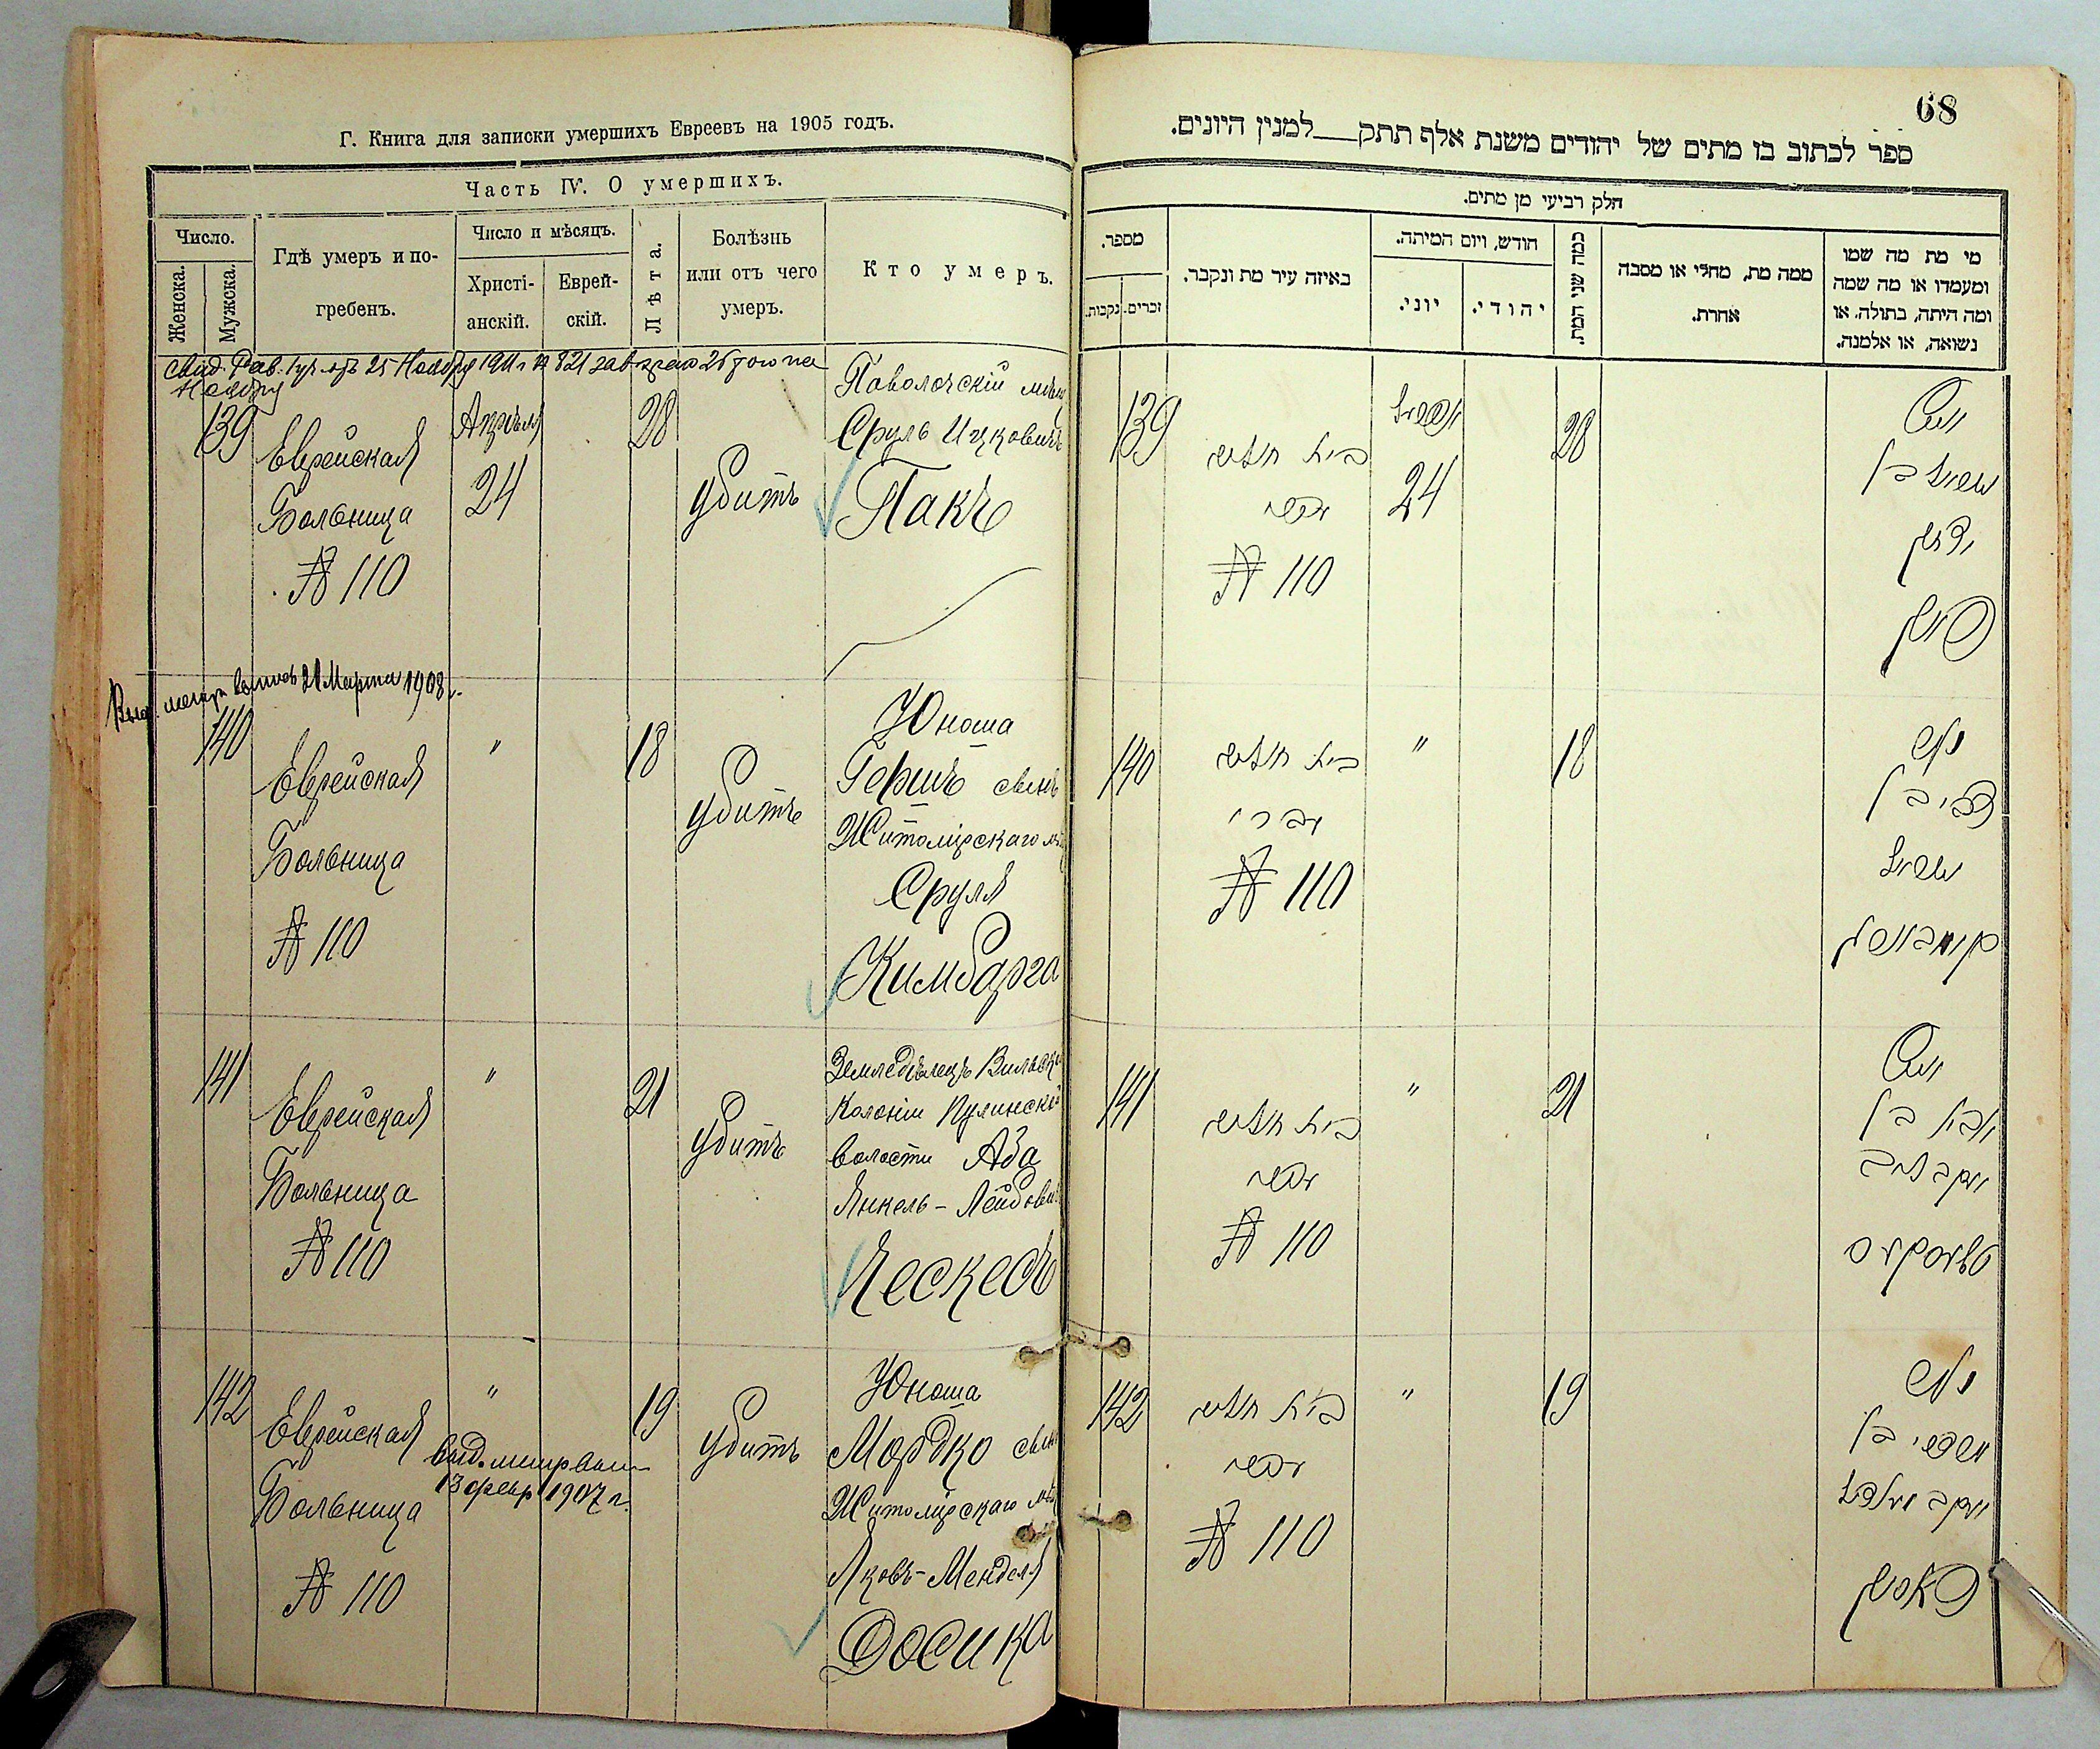 Г. Книга для записки умершихъ Евреевъ на 1905 годъ.
Часть IV. О умершихъ.
Число.
Женска.
Мужска.
Гдѣ умеръ и по-
гребенъ.
Число и мѣсяцъ.
Христі-
анскій.
Еврей-
скій.
Лѣта.
Болѣзнь
или отъ чего
умеръ.
Кто умеръ.
25 Ноября 1911 г № 821
139
Еврейская
Больница
№ 110
Апрѣля
24
28
Убитъ
Паволочскій мѣщ
Сруль Ицковичъ
Пакъ
21 Марта 1908 г.
140
Еврейская
Больница
№ 110
"
18
Убитъ
Юноша
Гершъ сынъ
Житомірскаго мѣщ
Сруля
Кимбарга
141
Еврейская
Больница
№ 110
"
21
Убитъ
Земледѣлецъ
Колоніи Пулинской
волости Аба
Янкель-Лейбовичъ
Ческесъ
142
Еврейская
Больница
№ 110
"
выд.
13 февр 1907 г.
19
Убитъ
Юноша
Мордко сынъ
Житомірскаго мѣщ
Яковъ-Менделя
Досика
68
ספר לכתוב בו מתים של יהודים משנת אלף תתק__למנין היונים.
חלק רביעי מן מתים.
מי מת מה שמו
ומעמדו או מה שמה
ומה היתה, בתולה. או
נשואה, או אלמנה.
ממה מת, מחלי או מסבה
אחרת.
כמה שני המת.
חודש, ויום המיתה.
יהודי.
יוני.
באיזה עיר מת ונקבר.
מספר.
זכרים.
נקבות.
139
בית חולים
№ 110
אפריל
24
28
איש
ישראל בן
יצחק
פאק
140
בית חולים
עברי
№ 110
"
18
צבי בן
ישראל
141
בית חולים
№ 110
"
21
איש
אבא בן
יעקב ליב
142
בית חולים
№ 110
"
19
מרדכי בן
יעקב מענדל